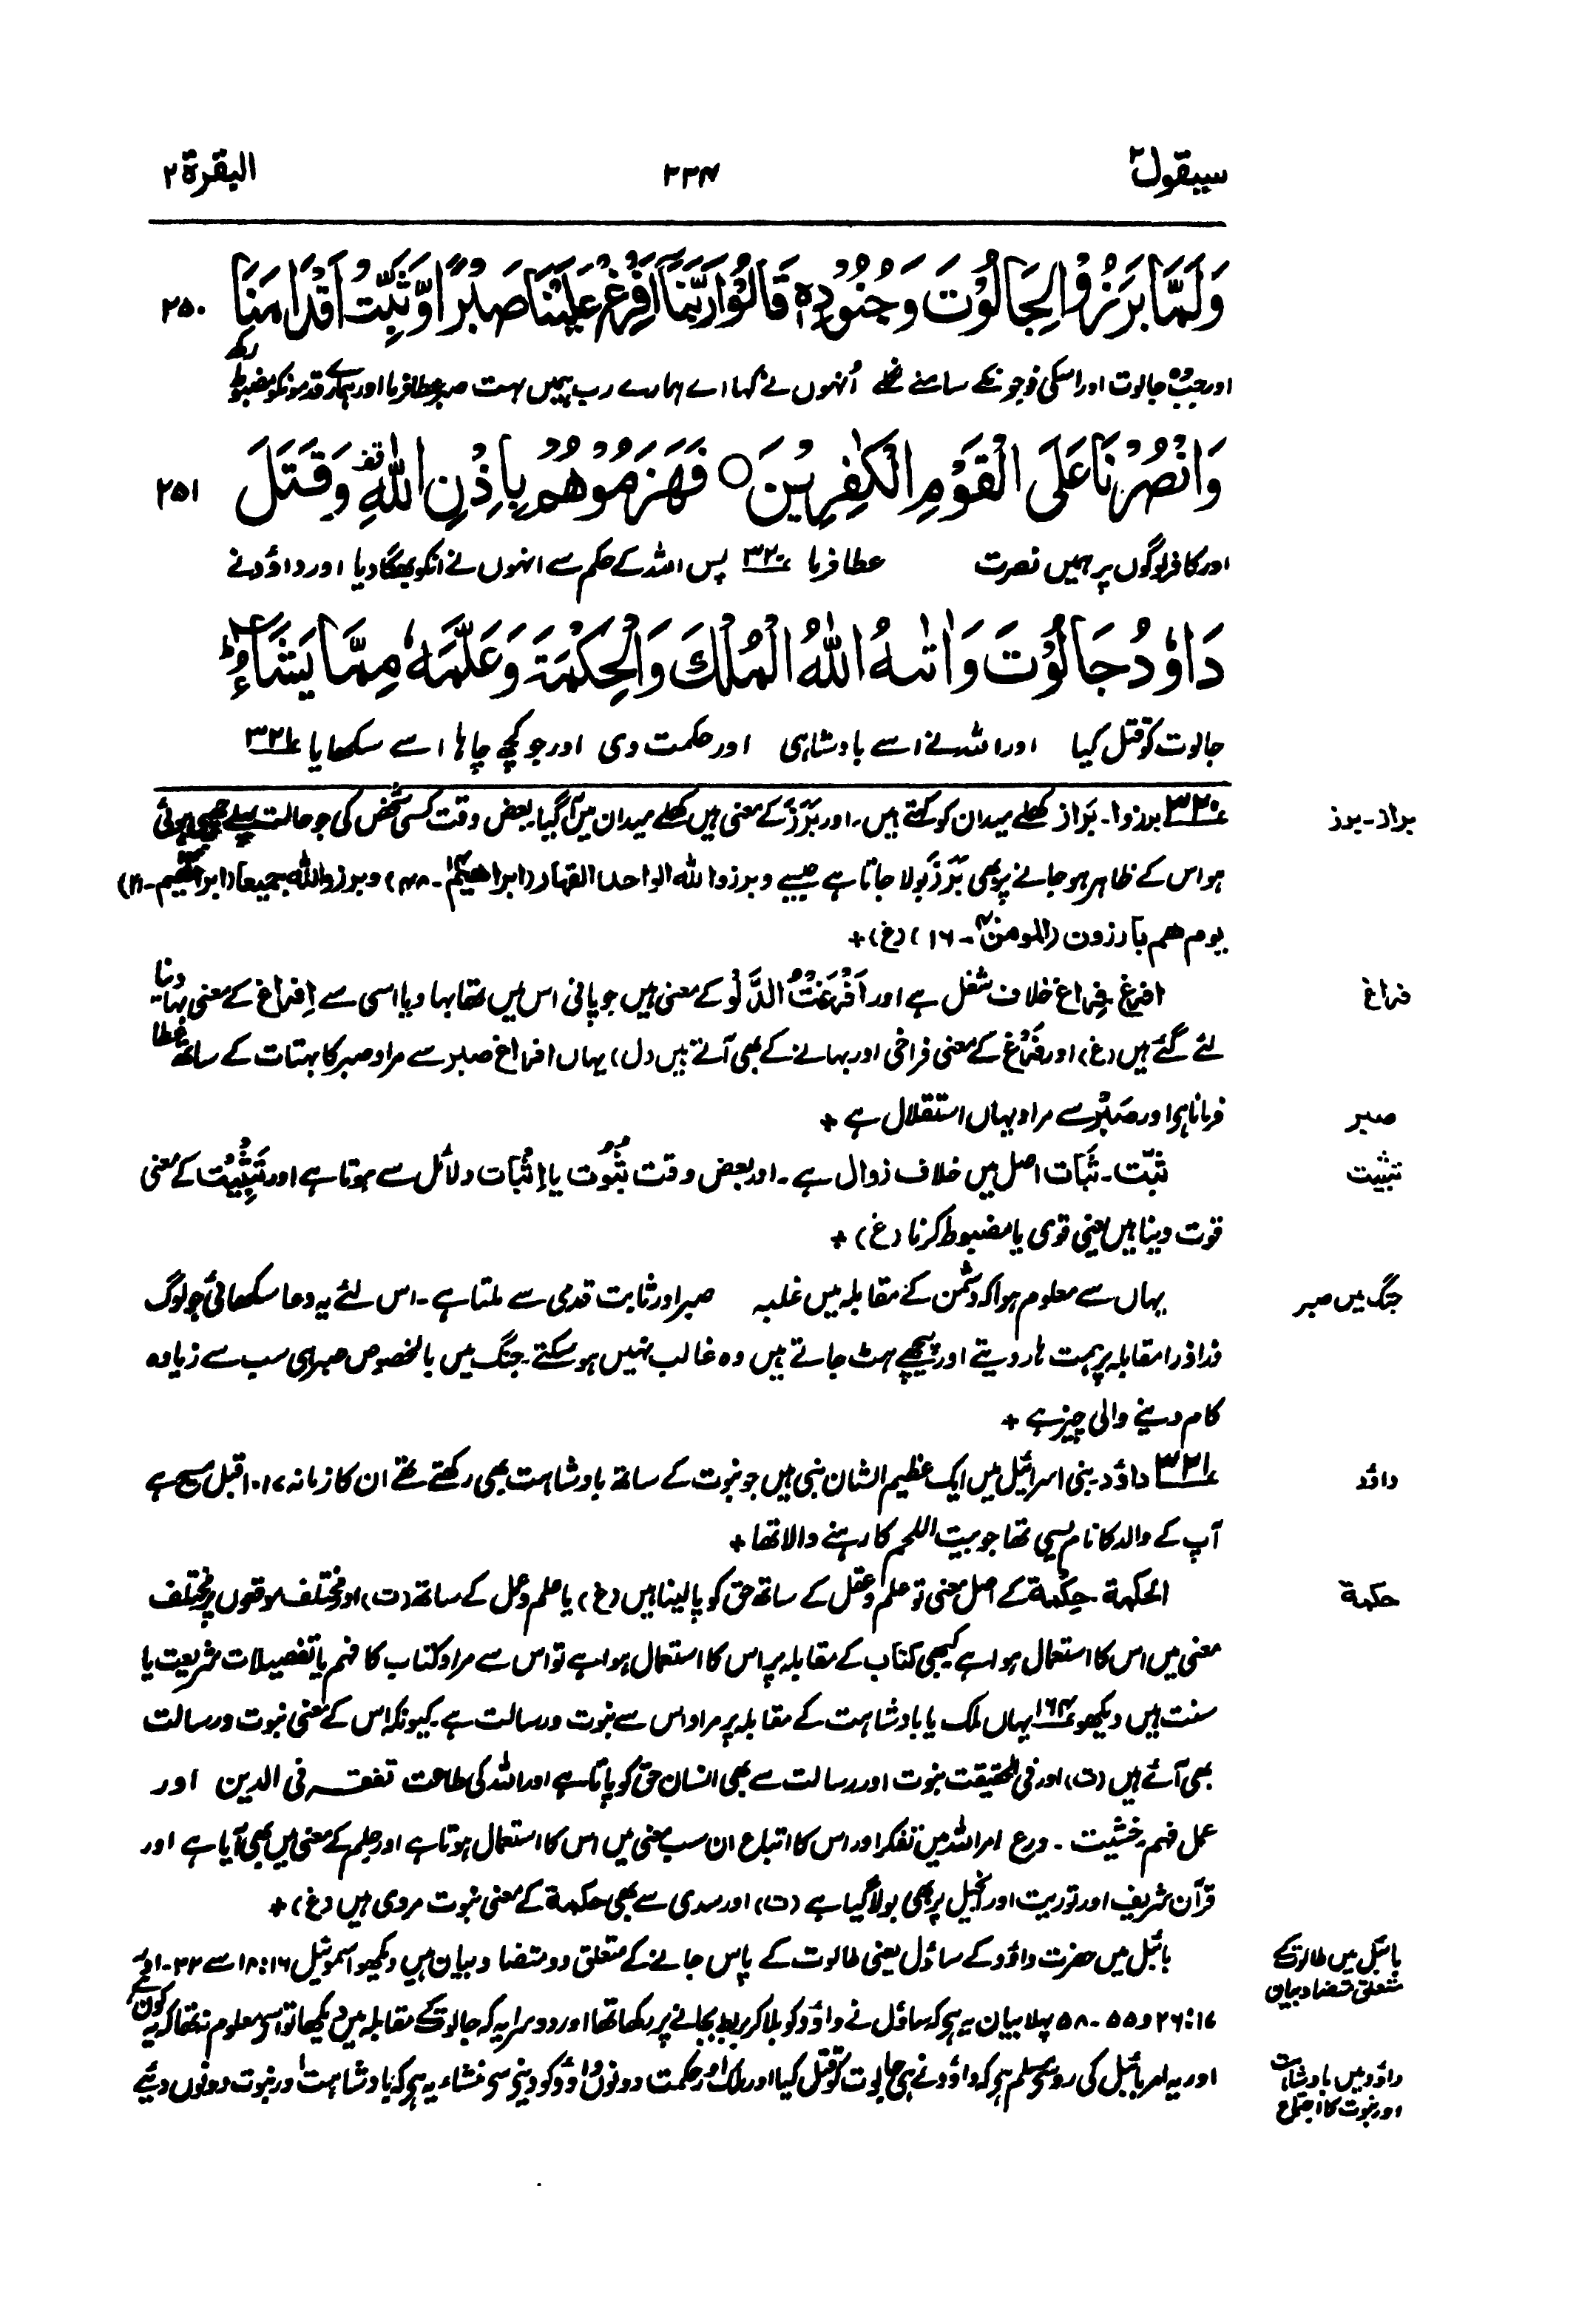 سیقول ۲
۲۳۴
البقرة ۲
وَلَمَّا بَرَزُوْا لِجَالُوْتَ وَجُنُوْدِهٖ قَالُوْا رَبَّنَآ اَفْرِغْ عَلَيْنَا صَبْرًا وَّثَبِّتْ اَقْدَامَنَا ۲۵۰
اور جب وہ جالوت اور اسکی فوجونکے سامنے نکلے اُنہوں نے کہا اے ہمارے رب ہمیں بہت صبر عطا فرما اور ہمارے قدمونکو مضبوط رکھ
وَانْصُرْنَا عَلَى الْقَوْمِ الْكٰفِرِيْنَ ○ فَهَزَمُوْهُمْ بِاِذْنِ اللّٰهِ وَقَتَلَ ۲۵۱
اور کافر لوگوں پر ہمیں نصرت عطا فرما ۳۲۰ پس اللہ کے حکم سے انہوں نے انکو بھگا دیا اور داؤد نے
دَاوٗدُ جَالُوْتَ وَاٰتٰىهُ اللّٰهُ الْمُلْكَ وَالْحِكْمَةَ وَعَلَّمَهٗ مِمَّا يَشَآءُ ؕ
جالوت کو قتل کیا اور اللہ نے اسے بادشاہی اور حکمت دی اور جو کچھ چاہا اسے سکھایا ۳۲۱
براز ۔ برز
۳۲۰ برزوا ۔ بَراز کھلے میدان کو کہتے ہیں ۔ اور بَرَزَ کے معنی ہیں کھلے میدان میں آگیا ۔ بعض وقت کسی شخص کی جو حالت پہلے چھپی ہوئی
ہو اس کے ظاہر ہو جانے پر بھی بَرَزَ بولا جاتا ہے جیسے وبرزوا للہ الواحد القهار (ابراھیم ۔ ۴۸) و برزوا للہ جمیعا (ابراھیم ۔ ۲۱)
یوم ھم بارزون (المومن ۔ ۱۶) (غ) +
فراغ
افرغ ۔ فراغ خلاف شغل ہے اور اَفْرَغْتُ الدَّلْو کے معنی ہیں جو پانی اس میں تھا بہا دیا اسی سے اِفراغ کے معنی بہا دینا
لئے گئے ہیں (غ) اور فَرْغ کے معنی فراخی اور بہانے کے بھی آتے ہیں (ل) یہاں افراغ صبر سے مراد صبر کا بہتات کے ساتھ عطا
فرمانا ہوا اور صَبْر سے مراد یہاں استقلال ہے +
صبر
تثبیت
ثبّت ۔ ثَبات اصل میں خلاف زوال ہے ۔ اور بعض وقت ثبُوت یا اِثبات دلائل سے ہوتا ہے اور تَثْبِیْت کے معنی
قوت دینا ہیں یعنی قوی یا مضبوط کرنا (غ) +
جنگ میں صبر
یہاں سے معلوم ہوا کہ دشمن کے مقابلہ میں غلبہ صبر اور ثابت قدمی سے ملتا ہے ۔ اس لئے یہ دعا سکھائی جو لوگ
ذرا ذرا مقابلہ پر ہمت ہار دیتے اور پیچھے ہٹ جاتے ہیں وہ غالب نہیں ہو سکتے ۔ جنگ میں بالخصوص صبر ہی سب سے زیادہ
کام دینے والی چیز ہے +
داؤد
۳۲۱ داؤد ۔ بنی اسرائیل میں ایک عظیم الشان نبی ہیں جو نبوت کے ساتھ بادشاہت بھی رکھتے تھے ان کا زمانہ ۱۰۱۷ قبل مسیح ہے
آپ کے والد کا نام یسی تھا جو بیت اللحم کا رہنے والا تھا +
حکمة
الحکمة ۔ حِکْمة کے اصل معنی تو علم و عقل کے ساتھ حق کو پا لینا ہیں (غ) یا علم و عمل کے ساتھ (ت) اور مختلف موقعوں پر مختلف
معنی میں اس کا استعمال ہوا ہے کبھی کتاب کے مقابلہ پر اس کا استعمال ہوا ہے تو اس سے مراد کتاب کا فہم یا تفصیلات شریعت یا
سنت ہیں دیکھو ۱۶۴ یہاں ملک یا بادشاہت کے مقابلہ پر مراد اس سے نبوت و رسالت ہے ۔ کیونکہ اس کے معنی نبوت و رسالت
بھی آئے ہیں (ت) اور فی الحقیقت نبوت اور رسالت سے بھی انسان حق کو پاتا ہے اور اللہ کی طاعت تفقہ فی الدین اور
عمل فہم ۔ خشیت ۔ ورع امر اللہ میں تفکر اور اس کا اتباع ان سب معنی میں اس کا استعمال ہوتا ہے اور حِلم کے معنی میں بھی آیا ہے اور
قرآن شریف اور توریت اور انجیل پر بھی بولا گیا ہے (ت) اور سدی سے بھی حکمة کے معنی نبوت مروی ہیں (غ) +
بائبل میں طالوت کے
متعلق متضاد بیان
بائبل میں حضرت داؤد کے ساؤل یعنی طالوت کے پاس جانے کے متعلق دو متضاد بیان ہیں دیکھو اسموئیل ۱۶ : ۱۸ سے ۲۳ ۔ اور
۱۷ : ۲۶ و ۵۵ ۔ ۵۸ پہلا بیان یہ ہے کہ ساؤل نے داؤد کو بلا کر بربط بجانے پر رکھا تھا اور دوسرا یہ کہ جالوت کے مقابلہ میں دیکھا تو اسے معلوم نہ تھا کہ یہ کون ہے
داؤد میں بادشاہت
اور نبوت کا اجتماع
اور یہ امر بائبل کی رو سے مسلم ہے کہ داؤد نے ہی جالوت کو قتل کیا اور ملک اور حکمت دونوں داؤد کو دینے سے منشاء یہ ہے کہ بادشاہت اور نبوت دونوں دیئے